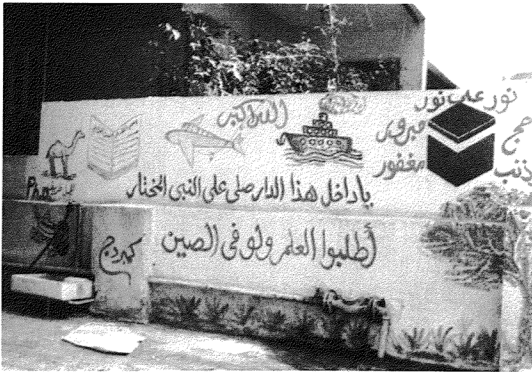 نور على نور
الله اكبر
حج مبرور
ذنب مغفور
يا داخل هذا الدار صلى على النبى المختار
أطلبوا العلم ولو فى الصين